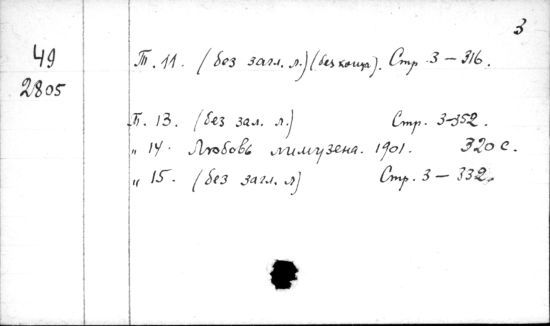 3
49
2805
Т. 11. (без загл. л.) (без конца). Стр. 3 — 316.
Т. 13. (без зал. л.) Стр. 3-352.
„ 14. Любовь лимузена. 1901. 320 с.
„ 15. (без загл. л) Стр. 3 — 332.